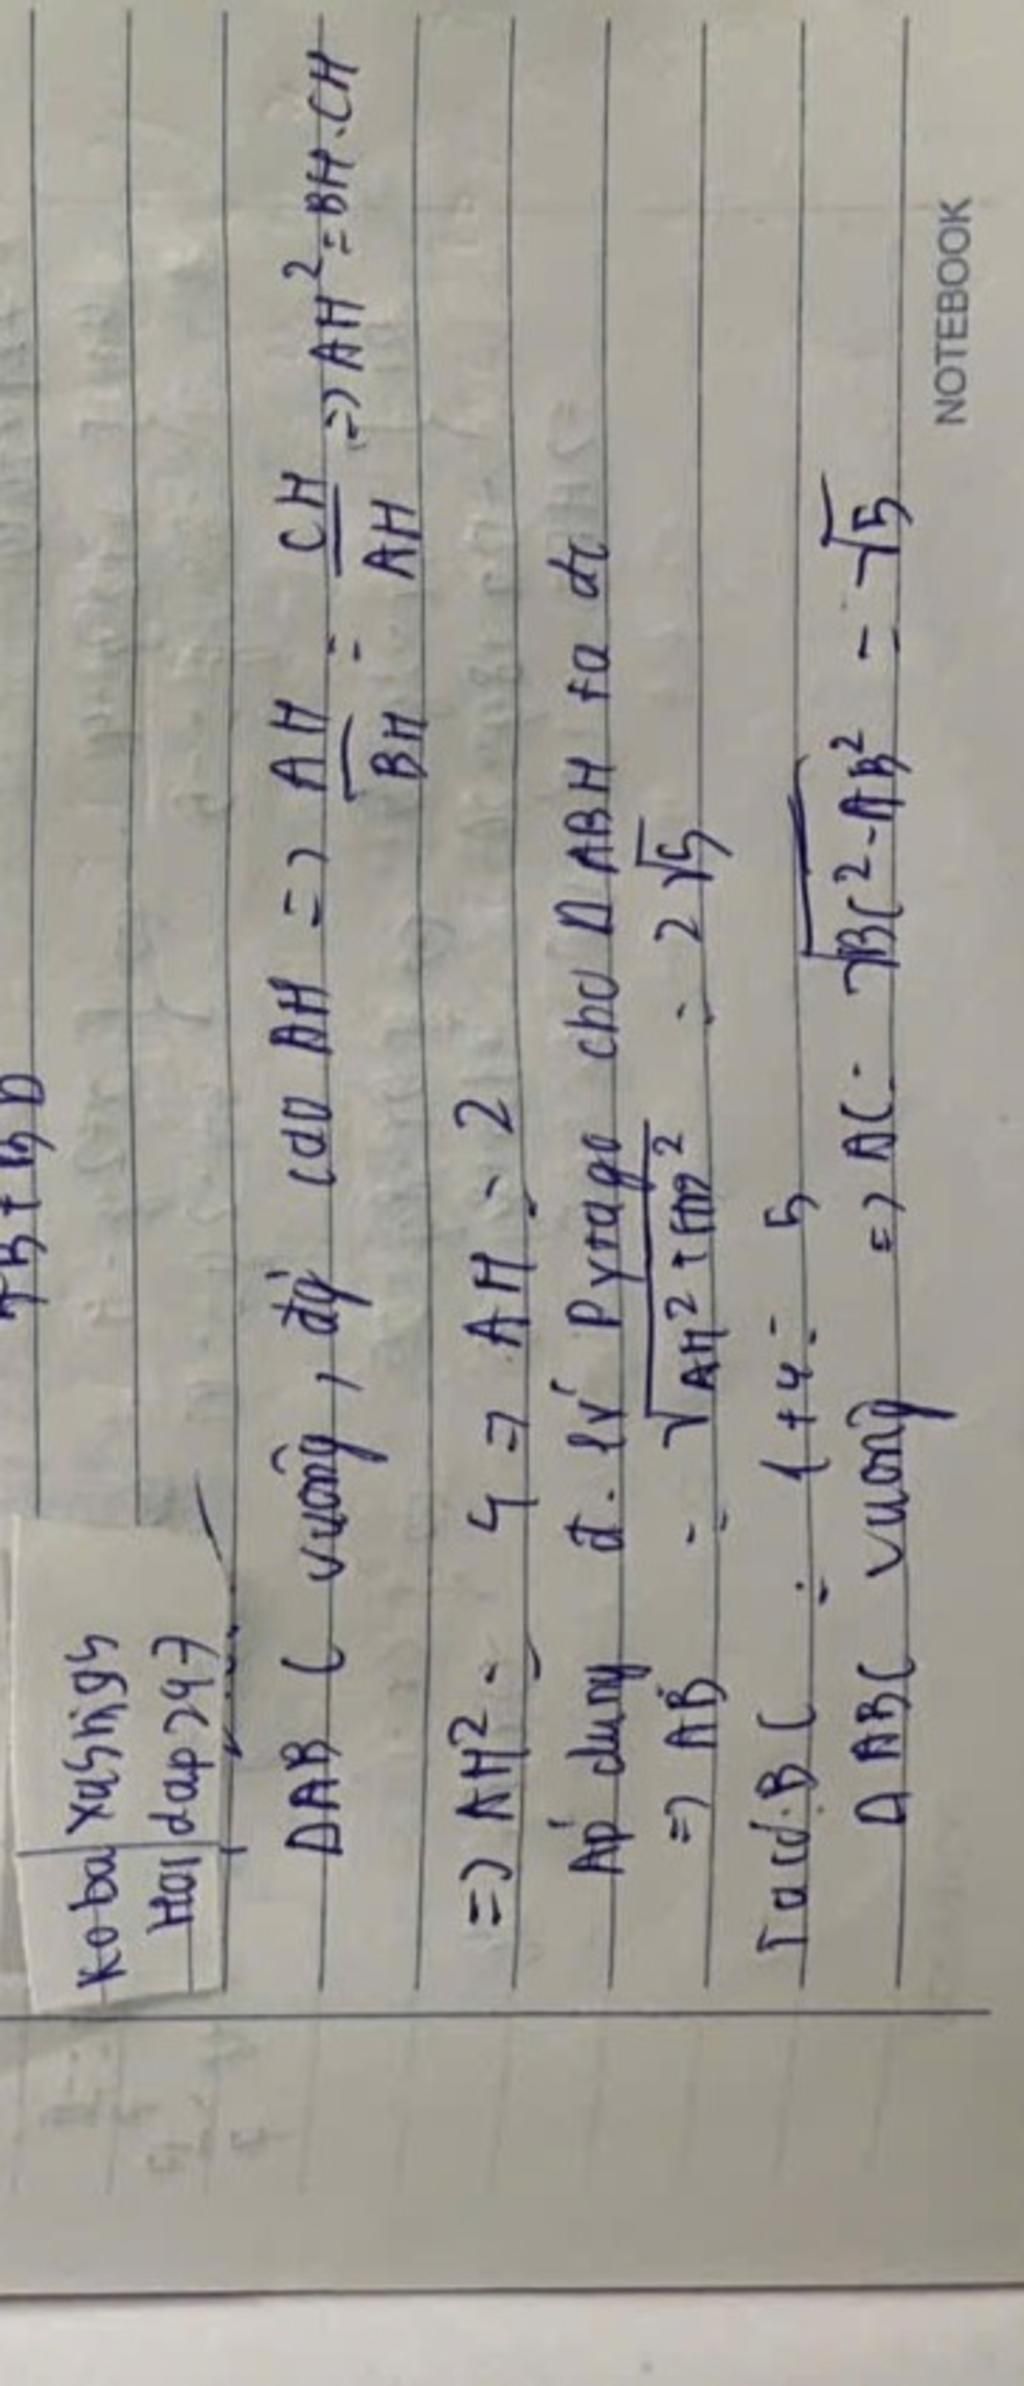 Koba xa5high
Hoi dap 247
ΔABC vuông, đg cao AH => AH/BH = CH/AH => AH² = BH.CH
=> AH² = 4 => AH = 2
Áp dụng đ.lý Pytago cho Δ ABH ta dc
=> AB = = 2√5
Ta có: BC = 1+4 = 5
Δ ABC vuông => AC = √BC²-AB² = √5
NOTEBOOK